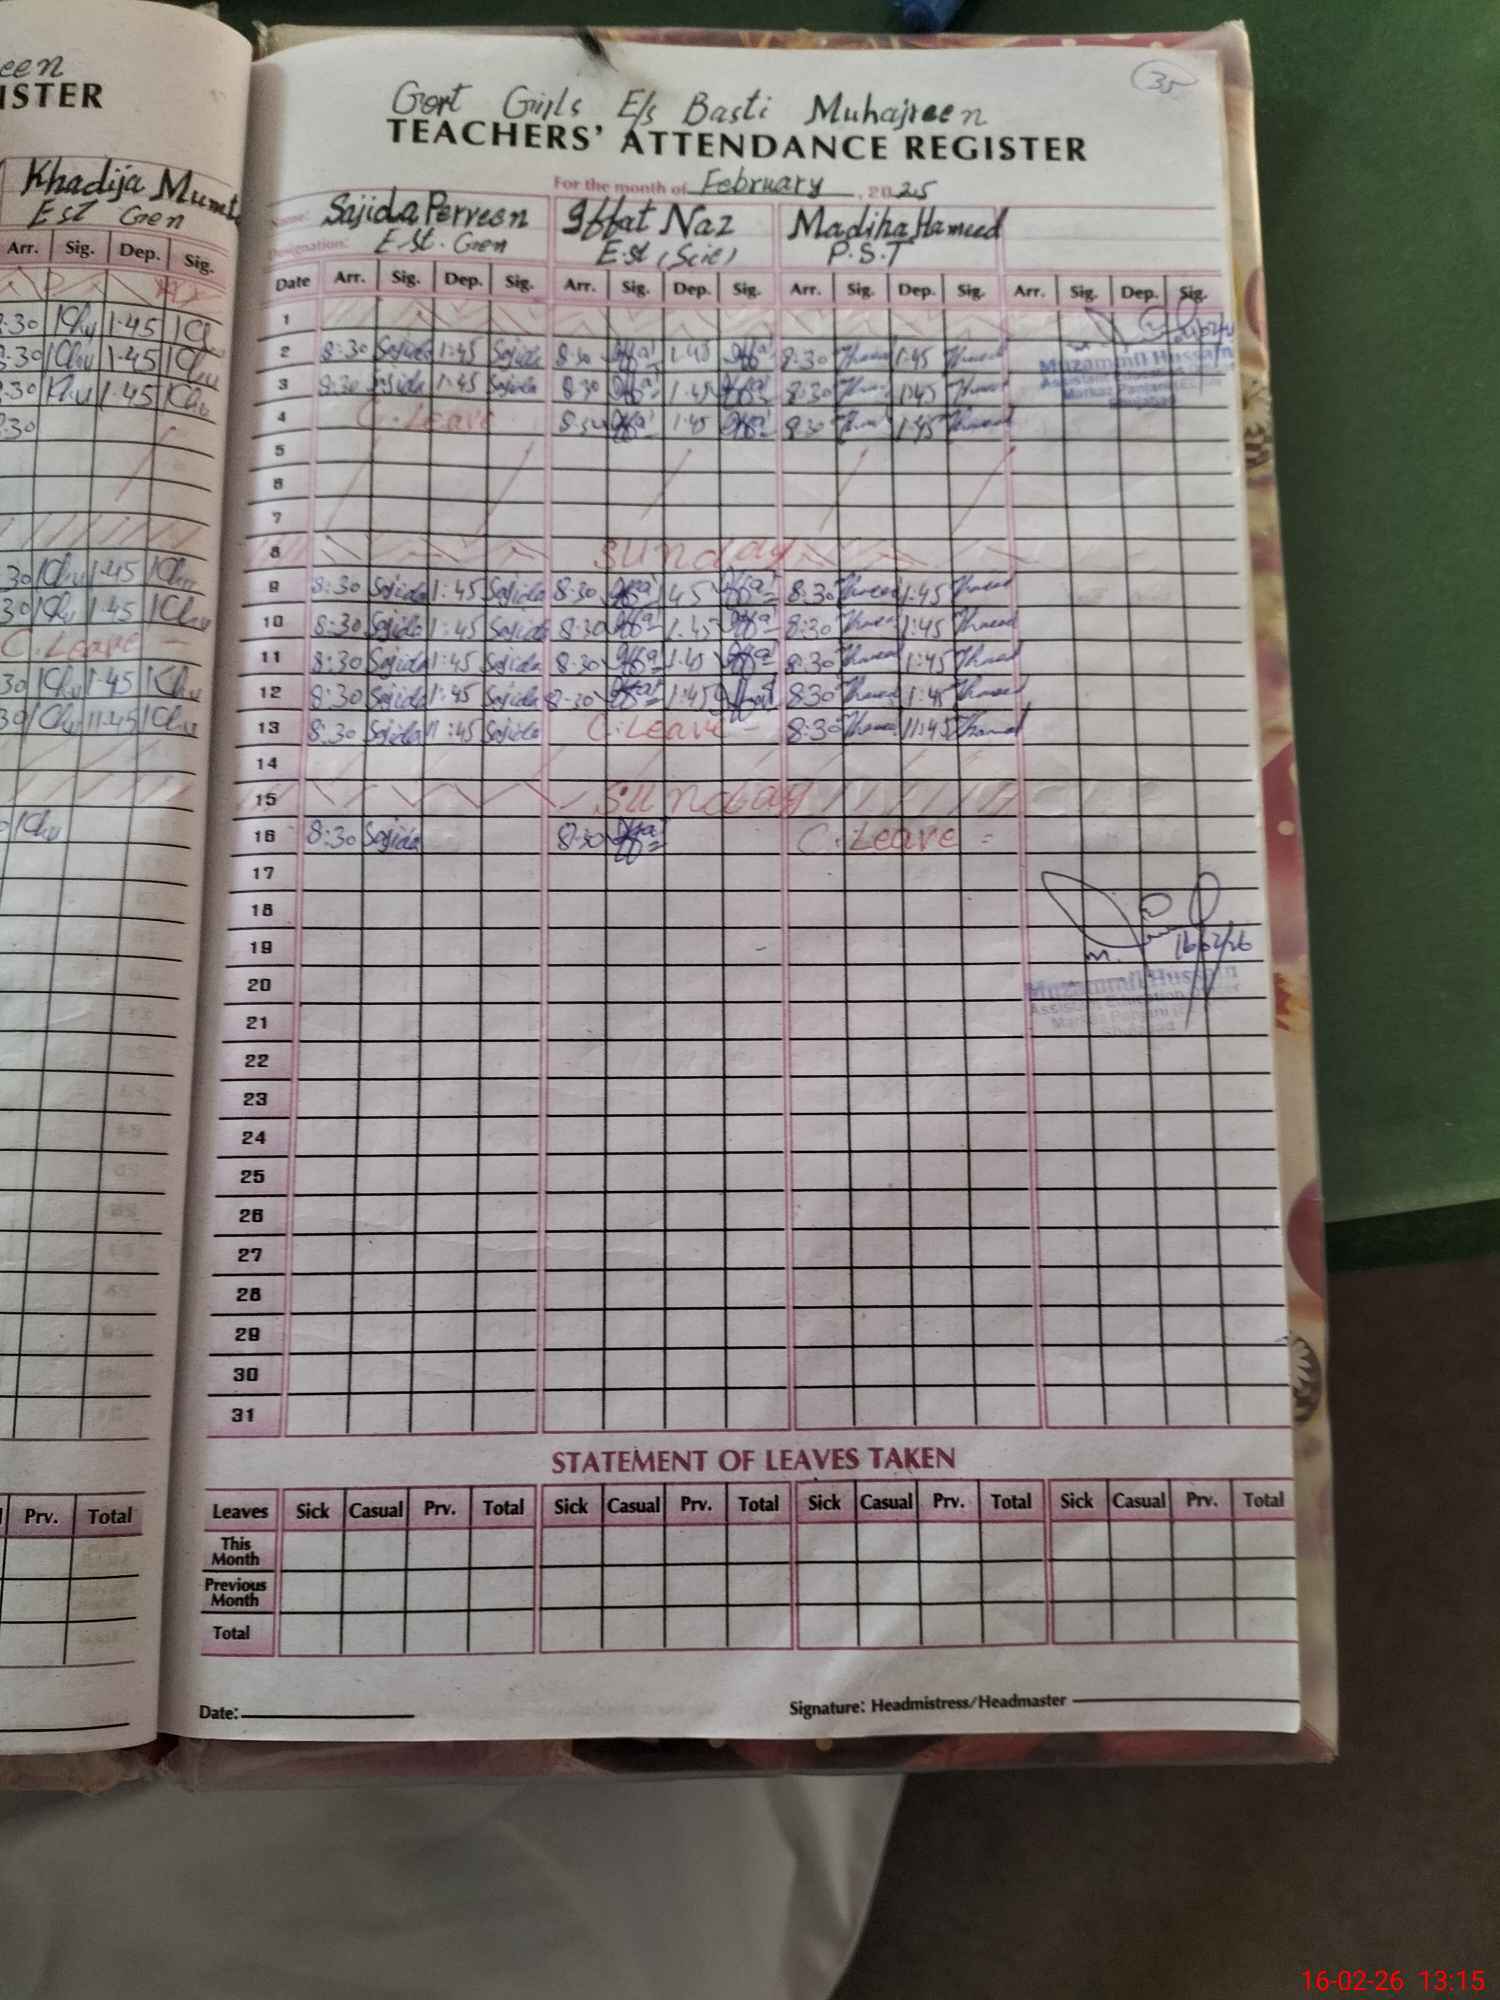 een
ISTER
Khadija Mumt
Est Gen
Arr. Sig. Dep. Sig.
:30 Khu 1·45 Khu
:30 Khu 1·45 Khu
:30 Khu 1·45 Khu
:30
30 Khu 1·45 Khu
30 Khu 1·45 Khu
C. Leave –
30 Khu 1·45 Khu
30 Khu 1·45 Khu
Khu
Prv. Total
35
Govt Girls E/s Basti Muhajreen
TEACHERS' ATTENDANCE REGISTER
For the month of February, 2025
Name: Sajida Perveen Iffat Naz Madiha Hameed
Designation: E·st·Gen E·st (Scie) P·S·T
Date Arr. Sig. Dep. Sig. Arr. Sig. Dep. Sig. Arr. Sig. Dep. Sig. Arr. Sig. Dep. Sig.
1
2 8:30 Sajida 1:45 Sajida 8·30 1·45 8:30 1:45
Muzammil Hussain
3 8:30 Sajida 1:45 Sajida 8·30 1·45 8:30 1:45
Assistant Education
4 C. Leave 8·30 1·45 8:30 1:45
5
6
7
8 Sunday
9 8:30 Sajida 1:45 Sajida 8·30 1·45 8:30 1:45
10 8:30 Sajida 1:45 Sajida 8·30 1·45 8:30 1:45
11 8:30 Sajida 1:45 Sajida 8·30 1·45 8:30 1:45
12 8:30 Sajida 1:45 Sajida 8·30 1:45 8:30 1:45
13 8:30 Sajida 11:45 Sajida C. Leave – 8:30 11:45
14
15 Sunday
16 8:30 Sajida 8·30 C. Leave =
17
18
19 16/02/26
20 Muzammil Hussain
21 Assistant Education
22
23
24
25
26
27
28
29
30
31
STATEMENT OF LEAVES TAKEN
Leaves Sick Casual Prv. Total Sick Casual Prv. Total Sick Casual Prv. Total Sick Casual Prv. Total
This Month
Previous Month
Total
Date:
Signature: Headmistress/Headmaster
16-02-26 13:15